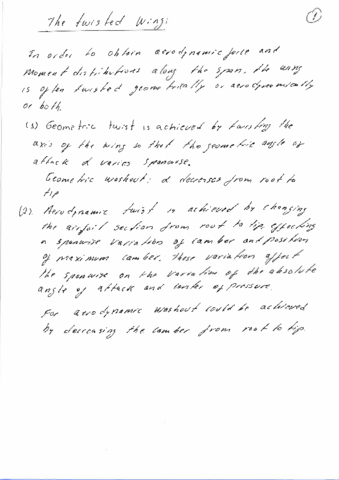 The twisted Wing:
1
In order to obtain aerodynamic force and
Moment distributions along the span, the wing
is often twisted geometrically or aerodynamically
or both.
(1) Geometric twist is achieved by twisting the
axis of the wing so that the geometric angle of
attack α varies spanwise.
Geometric washout: α decreases from root to
tip
(2). Aerodynamic twist is achieved by changing
the airfoil section from root to tip, effecting
a spanwise variation of camber and position
of maximum camber. These variation affect
the spanwise on the variation of the absolute
angle of attack and center of pressure.
For aerodynamic washout could be achieved
by decreasing the camber from root to tip.